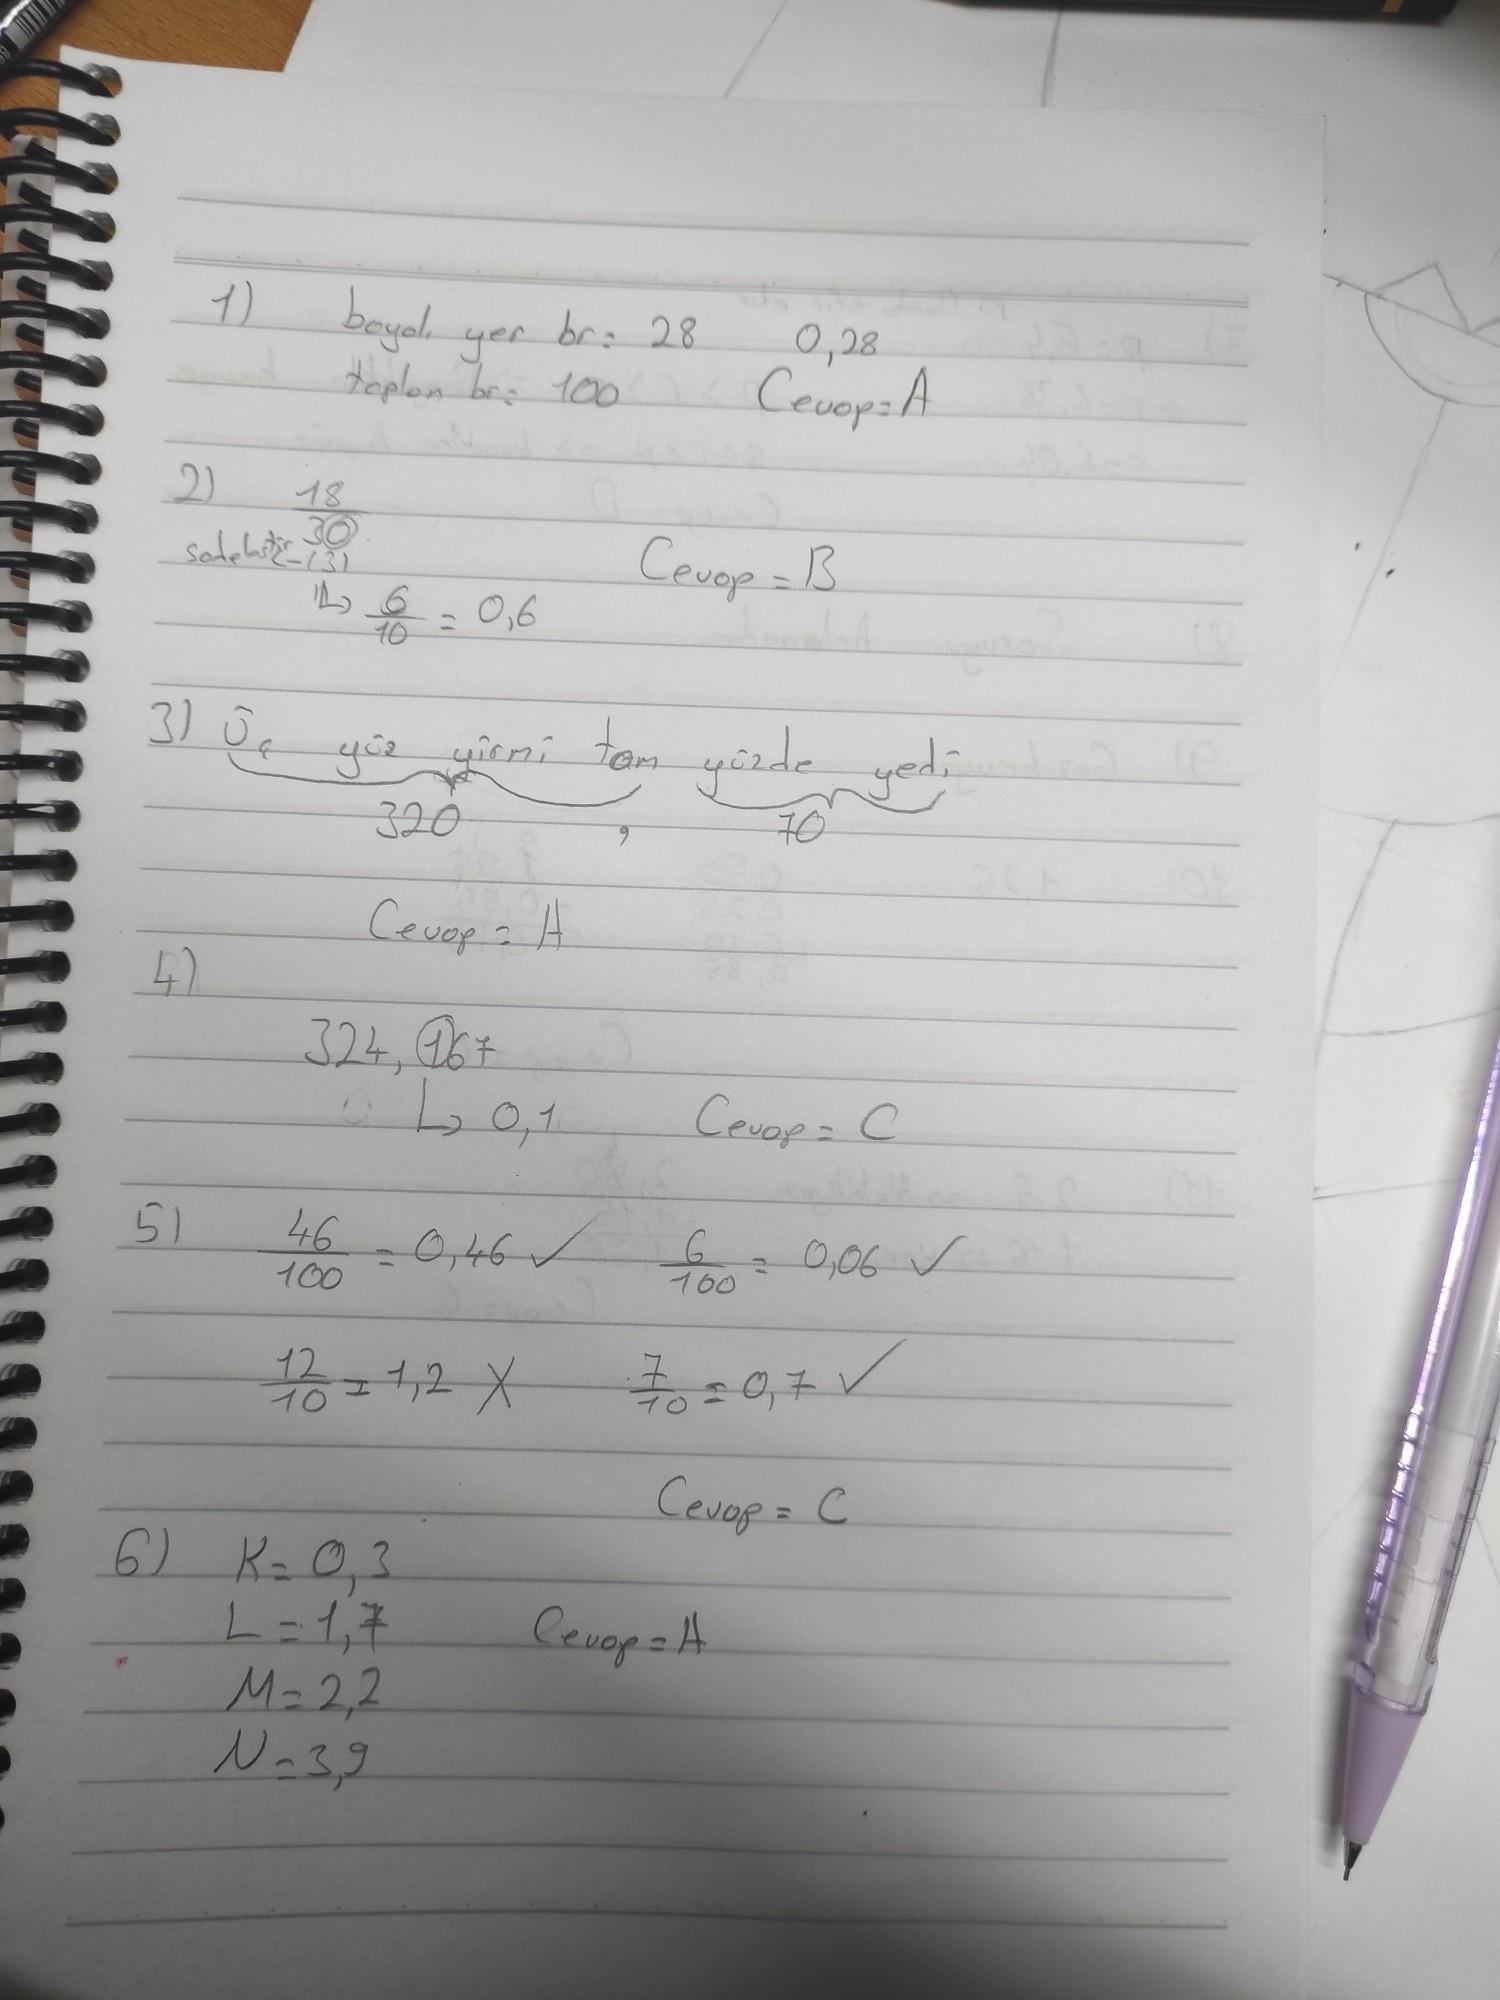 1) boyalı yer br = 28 0,28
toplam br = 100 Cevap = A
2) 18/30
sadeleştir (3)
↳ 6/10 = 0,6 Cevap = B
3) Üç yüz yirmi tam yüzde yedi
320 , 70
Cevap = A
4)
324,167
↳ 0,1 Cevap = C
5) 46/100 = 0,46 ✓ 6/100 = 0,06 ✓
12/10 = 1,2 X 7/10 = 0,7 ✓
Cevap = C
6) K = 0,3
L = 1,7 Cevap = A
M = 2,2
N = 3,9